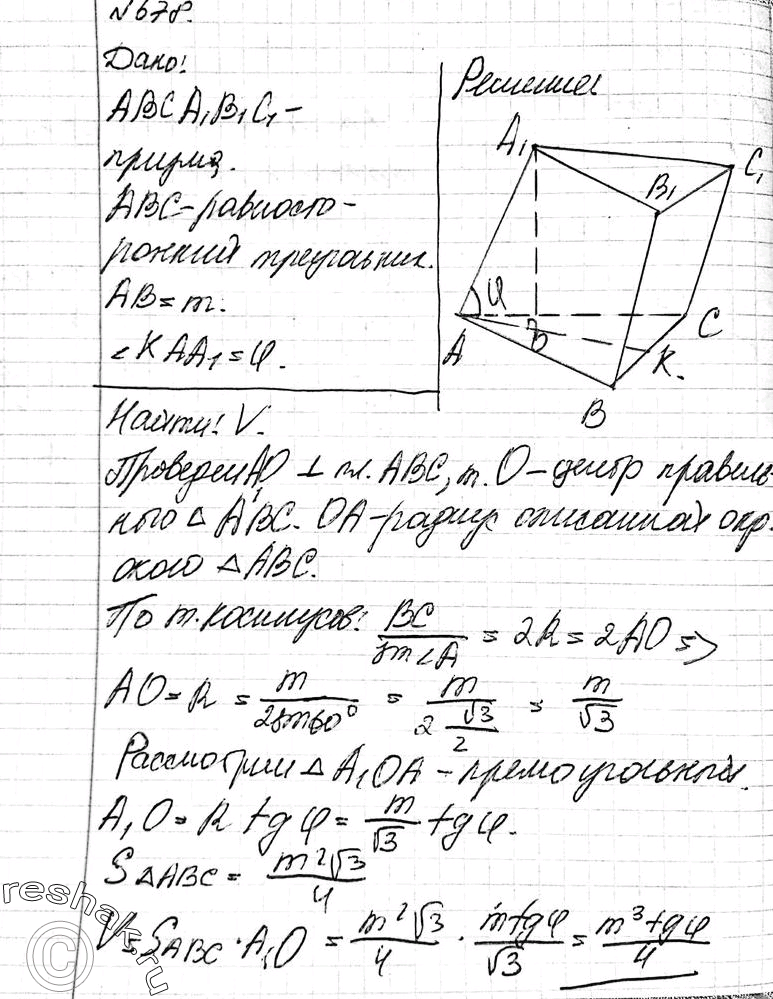 №678.
Дано:
ABCA₁B₁C₁ –
призма.
ABC – равносто-
ронний треугольник.
AB = m.
∠KAA₁ = φ.
Решение:
A₁
C₁
B₁
φ
A
B
C
K.
B
Найти: V.
Проведем A₁O ⊥ пл. ABC, т. O – центр правиль-
ного △ ABC. OA – радиус описанной окр.
около △ ABC.
По т. косинусов: BC/sin∠A = 2R = 2AO =>
AO = R = m/(2sin60°) = m/(2 √3/2) = m/√3
Рассмотрим △ A₁OA – прямоугольный.
A₁O = R tg φ = m/√3 tg φ.
S△ABC = m²√3/4
V = S ABC · A₁O = m²√3/4 · m tg φ/√3 = m³ tg φ/4
reshak.ru
©